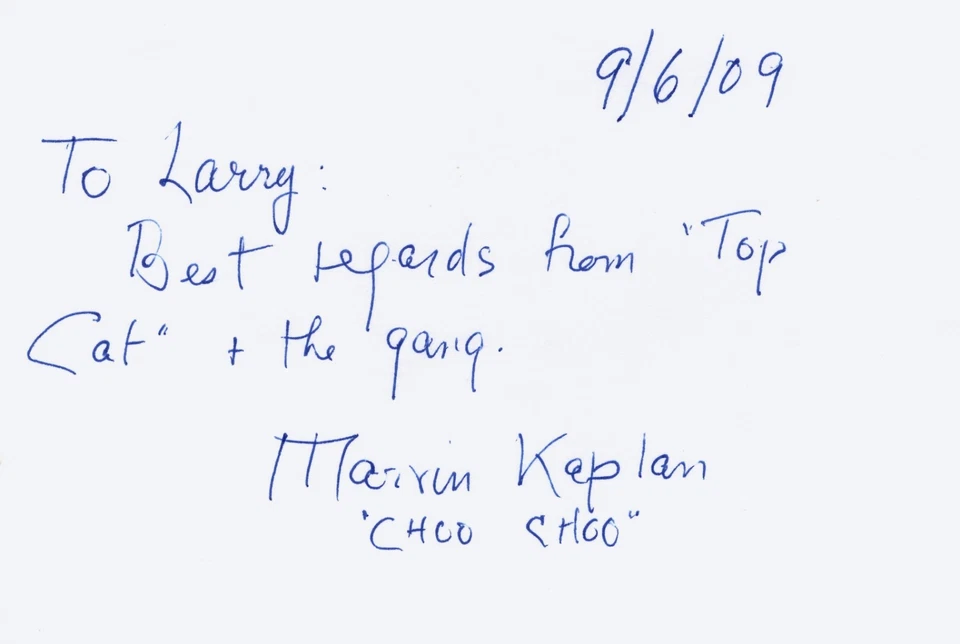 9/6/09
To Larry:
Best regards from "Top
Cat" + the gang.
Marvin Kaplan
"CHOO CHOO"